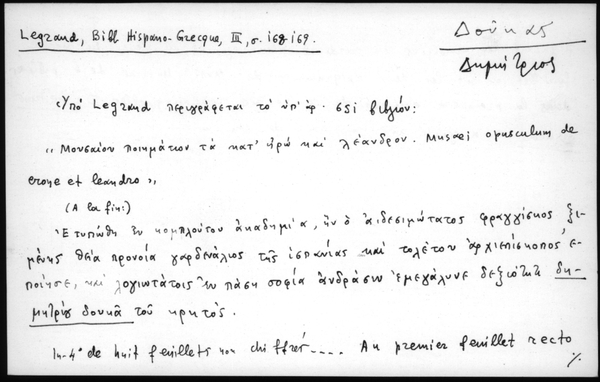 Legrand, Bibl Hispano-Grecque, III, σ. 168-169.
Δούκας
Δημήτριος
Ὑπό Legrand περιγράφεται τό ὑπ' ἀρ. 651 βιβλίον:
« Μουσαίου ποιημάτιον τά κατ' ἡρώ καί λέανδρον. Musaei opusculum de
eroye et leandro »,
(A la fin:)
Ἐτυπώθη ἐν κομπλούτου ἀκαδημία, ἥν ὁ αἰδεσιμώτατος φραγγίσκος ξι-
μένης θεία προνοία γαρδενάλιος τῆς ἱσπανίας καί τολέτου ἀρχιεπίσκοπος, ἐ-
ποίησε, καί λογιωτάτοις ἐν πάση σοφία ἀνδράσιν ἐμεγάλυνε δεξιότητι δη-
μητρίου δουκᾶ τοῦ κρητός.
In-4° de huit feuillets non chiffrés.... Au premier feuillet recto
%